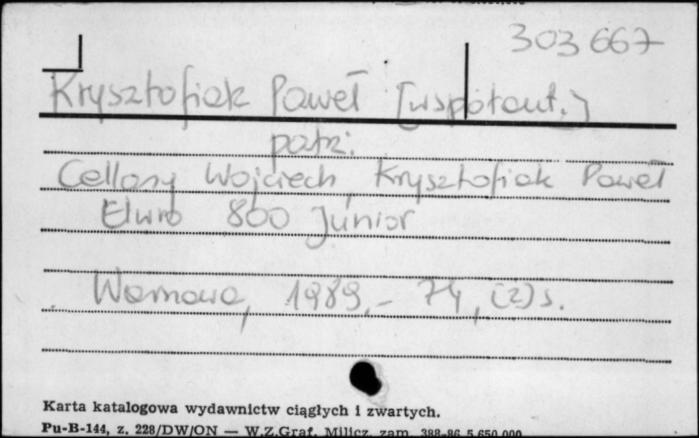 303667
Krysztofiak Paweł [współaut.]
patrz:
Cellary Wojciech, Krysztofiak Paweł
Elwro 800 Junior
Warszawa, 1989.- 74, (2) s.
Karta katalogowa wydawnictw ciągłych i zwartych.
Pu-B-144, z. 228/DW/ON — W.Z.Graf. Milicz, zam. 388-86 5.650.000